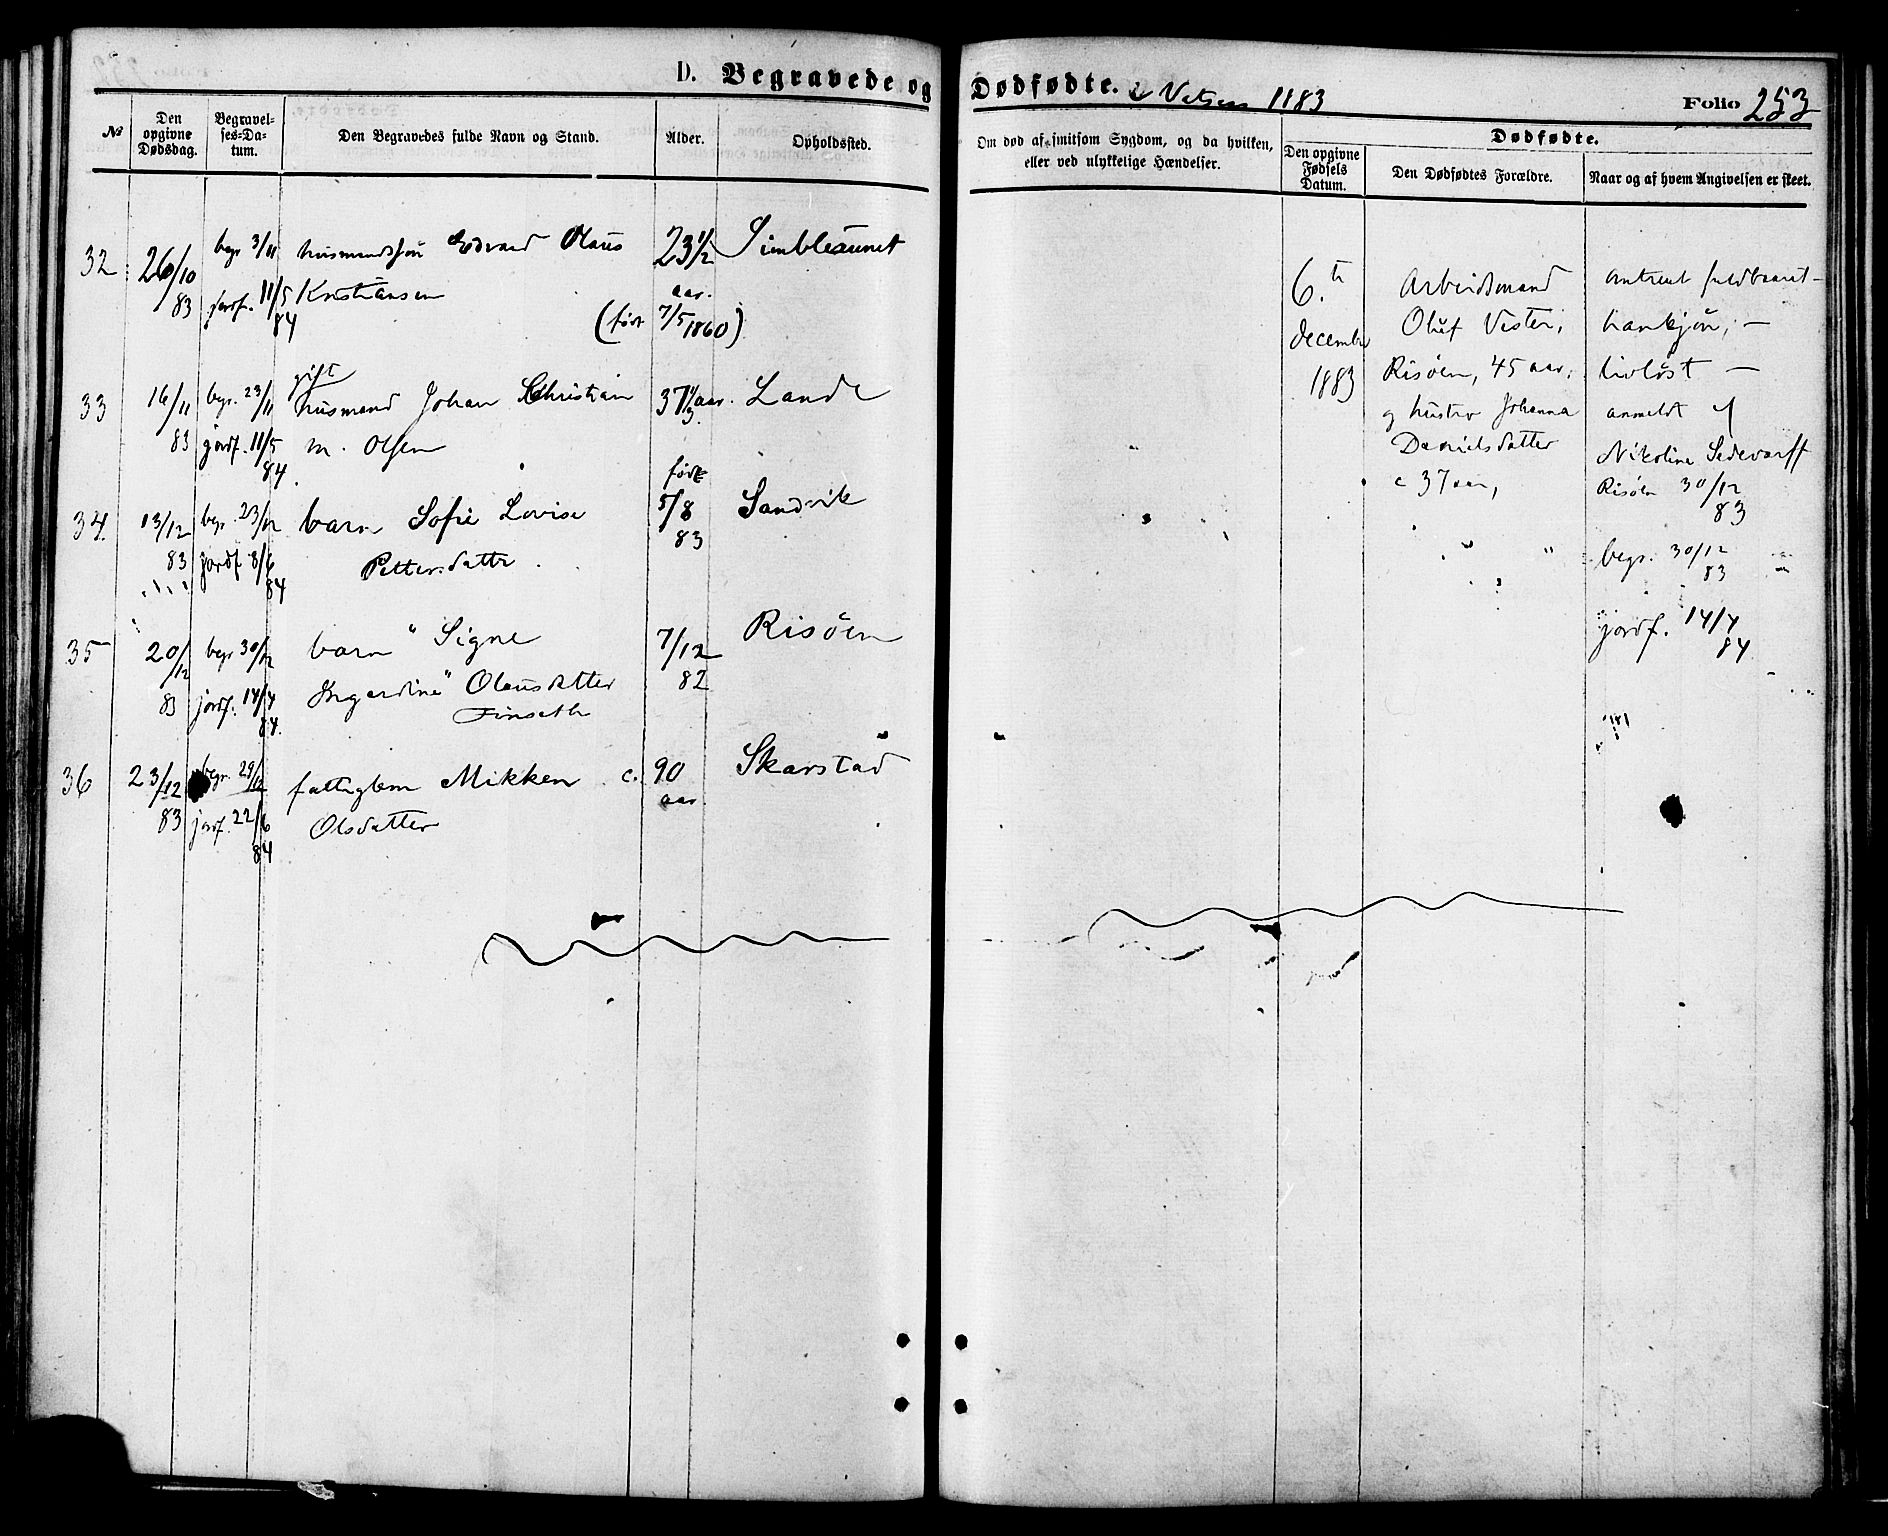 D. Begravede og Dødfødte. 1883
Folio 253
№
Den opgivne Dødsdag.
Begravelses-Datum.
Den Begravedes fulde Navn og Stand.
Alder.
Opholdssted.
Om død af smitsom Sygdom, og da hvilken, eller ved ulykkelige Hændelser.
Dødfødte.
Den opgivne Fødsels Datum.
Den Dødfødtes Forældre.
Naar og af hvem Angivelsen er skeet.
32 26/10 begr 3/11 husmandssøn Edvard Olaus 23 1/2 Simbleaunet
83 jordf. 11/5 84 Kristiansen aar.
(født 7/5 1860)
gift
33 16/11 begr. 23/11 husmand Johan Christian 37 1/3 aar. Lande
83 jordf. 11/5 84. m. Olsen
født
34. 13/12 begr. 23/12 barn Sofie Lovise 5/8 Sandvik
83 jordf 8/6 84 Pettersdatter. 83
35 20/12 begr 30/12 barn "Signe 7/12 Risöen
83 jordf. 14/4 84. Ingardine" Olausdatter 82
Finseth
36 23/12 begr. 29/12 fattiglem Mikken c. 90 Skarstad
83 jordf. 22/6 84 Olsdatter aar.
6.te
december
1883
Arbeidsmand
Oluf Vester,
Risöen, 45 aar,
og hustru Johanna
Danielsdatter
c 37 aar,
omtrent fuldbaaret -
hankjön, -
livlöst -
anmeldt af
Nikoline
Risöen 30/12
83
begr. 30/12
83
jordf. 14/4
84